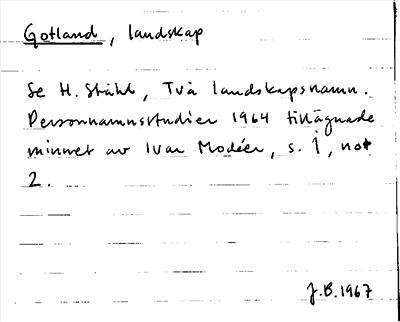 Gotland, landskap
Se H. Ståhl, Två landskapsnamn.
Personnamnsstudier 1964 tillägnade
minnet av Ivar Modéer, s. 1, not
2.
J.B. 1967